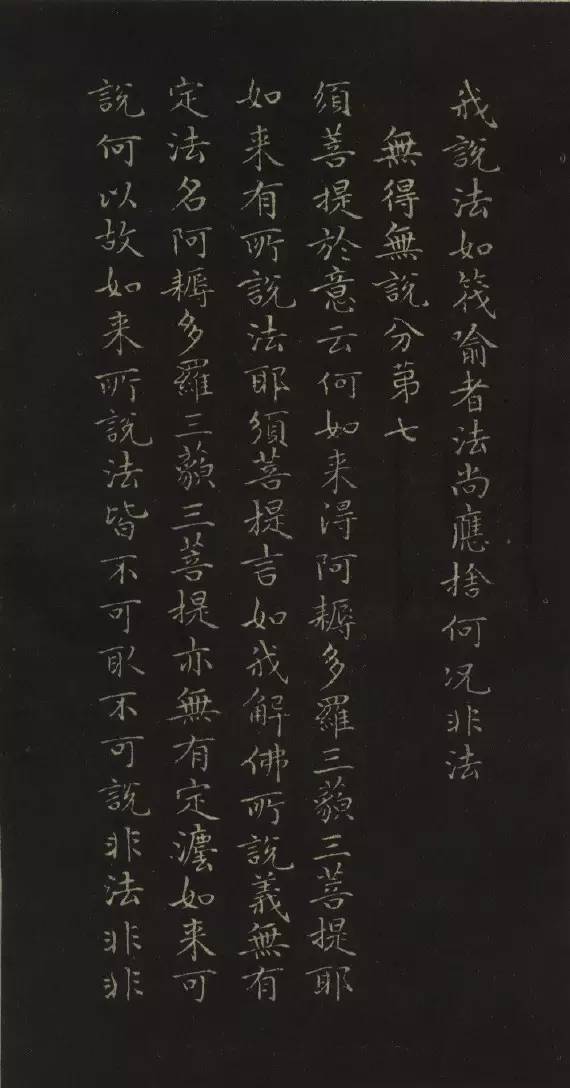 我說法如筏喻者法尚應捨何況非法
無得無說分第七
須菩提於意云何如来淂阿耨多羅三藐三菩提耶
如来有所說法耶須菩提言如我解佛所說義無有
定法名阿耨多羅三藐三菩提亦無有定灋如来可
說何以故如来所說法皆不可取不可說非法非非